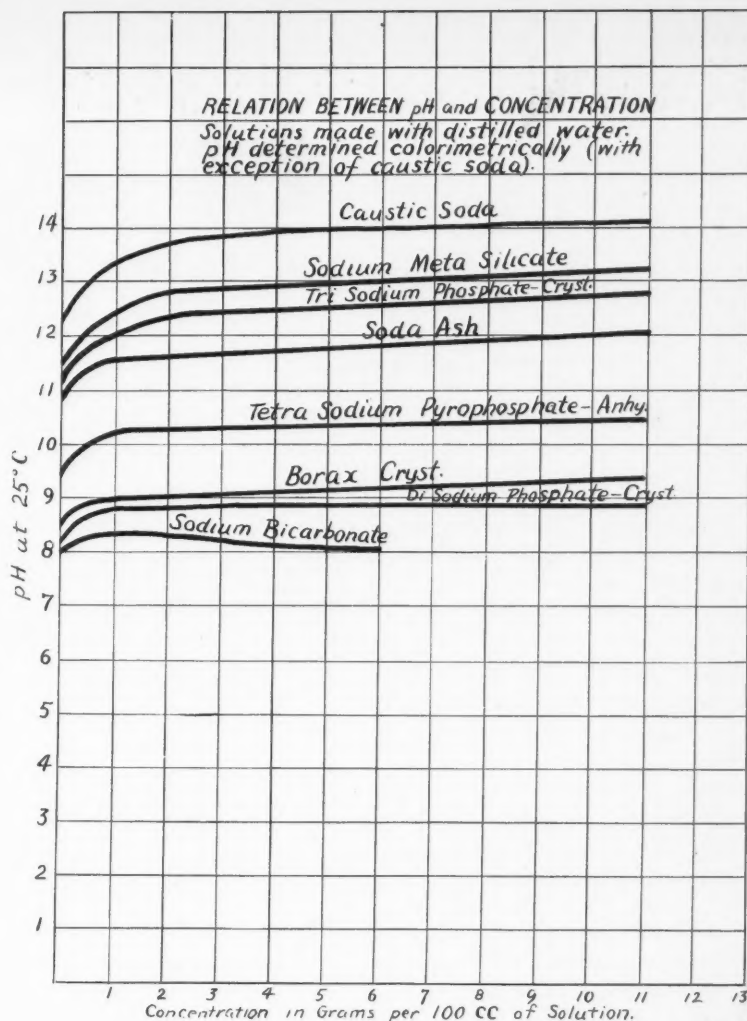 RELATION BETWEEN pH and CONCENTRATION
Solutions made with distilled water.
pH determined colorimetrically (with
exception of caustic soda).
Caustic Soda
Sodium Meta Silicate
Tri Sodium Phosphate-Cryst.
Soda Ash
Tetra Sodium Pyrophosphate-Anhy.
Borax Cryst.
Di Sodium Phosphate-Cryst.
Sodium Bicarbonate
pH at 25°C
14
13
12
11
10
9
8
7
6
5
4
3
2
1
1 2 3 4 5 6 7 8 9 10 11 12 13
Concentration in Grams per 100 CC of Solution.